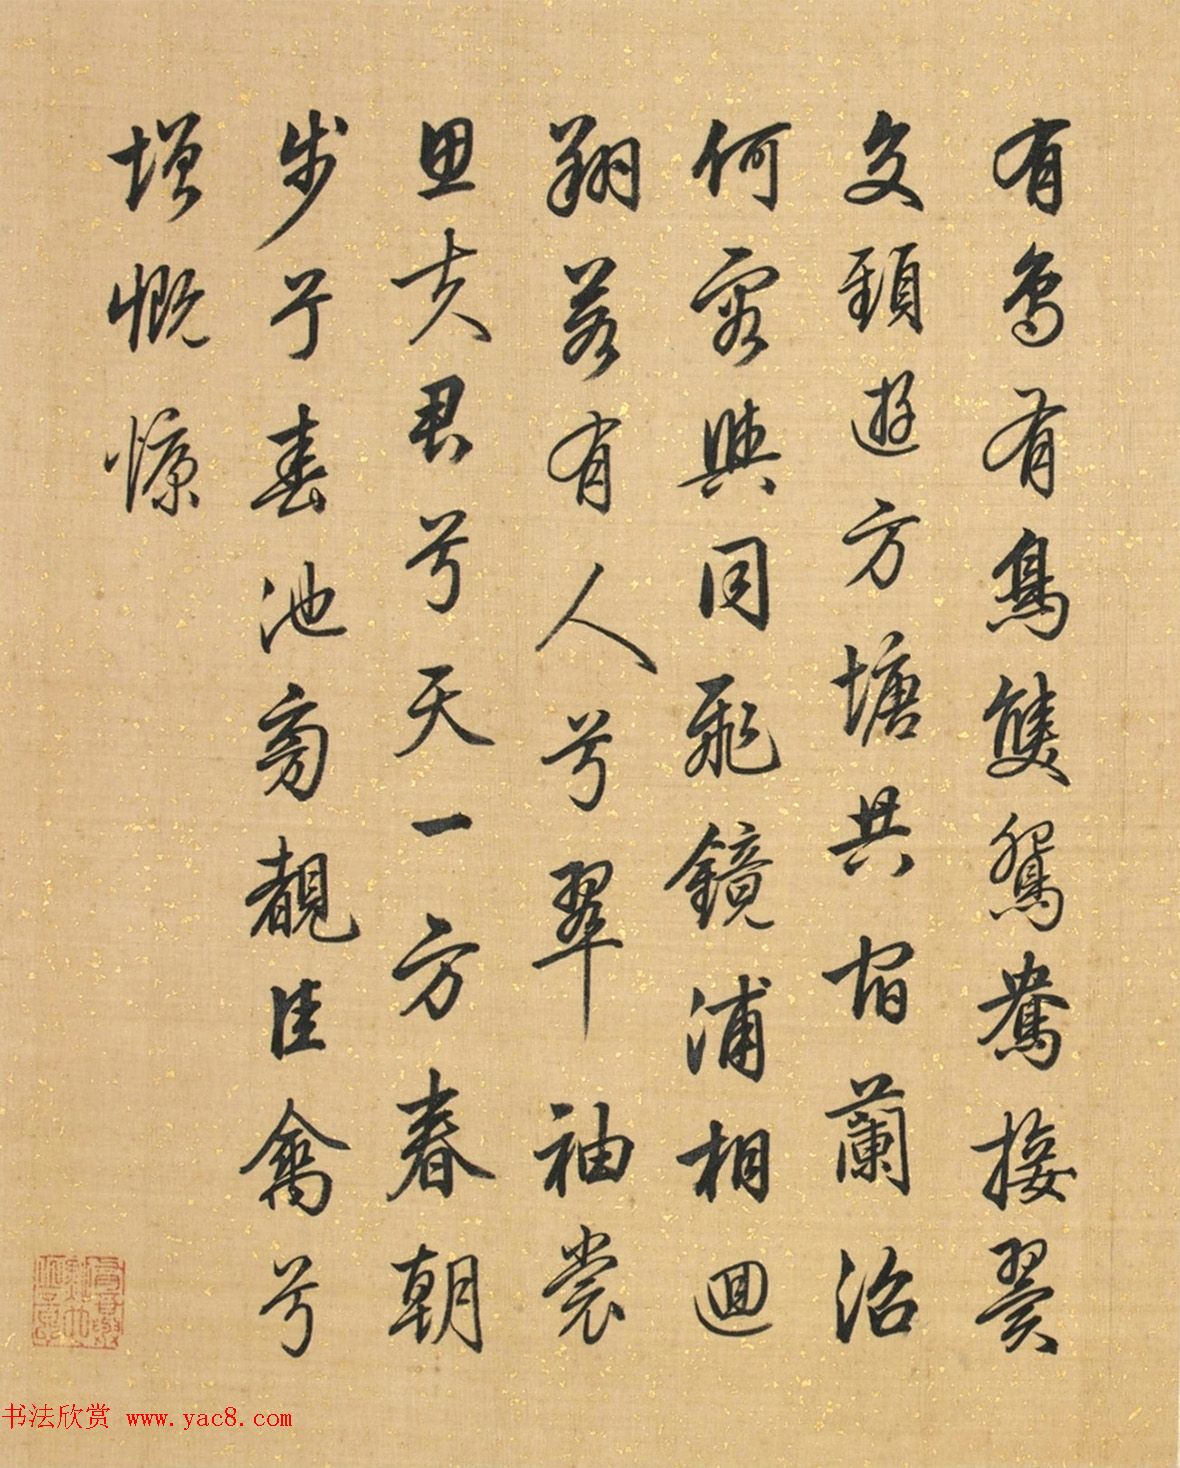 有鳥有鳥雙鴛鴦接翼
交頸遊方塘共宿蘭沼
何容與同飛鏡浦相迴
翔若有人兮翠袖裳
思夫君兮天一方春朝
步于畫池旁覩佳禽兮
增慨慷
书法欣赏 www.yac8.com